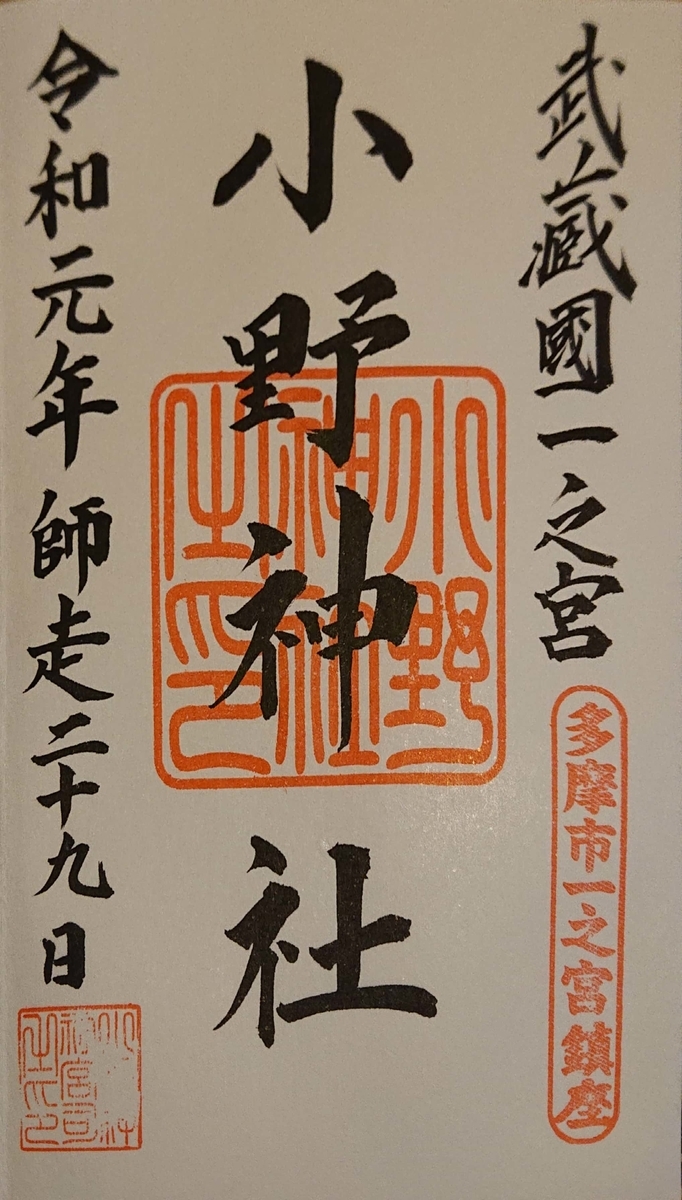 武蔵國一之宮
多摩市一之宮鎮座
小野神社
小野
神社
之印
令和元年師走二十九日